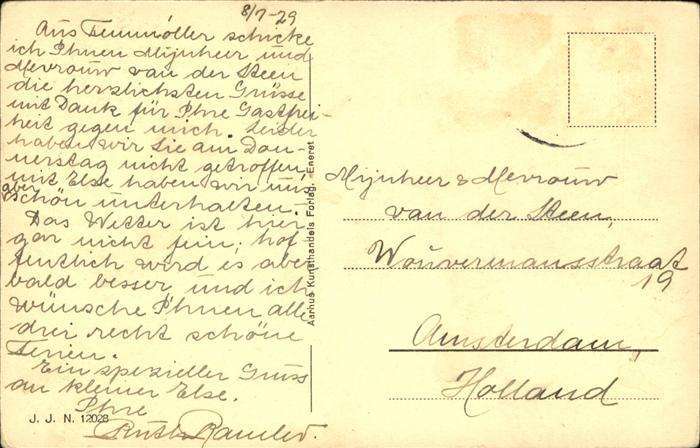 8/7-29
Aus Femmöller schicke
ich Ihnen Mijnheer und
Mevrouw van der Steen
die herzlichsten Grüsse
mit Dank für Ihre Gastfrei-
heit gegen mich. Leider
haben wir Sie am Don-
nerstag nicht getroffen,
mit Else haben wir uns
aber
schön unterhalten.
Das Wetter ist hier
gar nicht fein, hof-
fentlich wird es aber
bald besser, und ich
wünsche Ihnen alle
drei recht schöne
Ferien.
Ein spezieller Gruss
an kleiner Else.
Ihre
Ruth
J. J. N. 12028
Aarhus Kunsthandels Forlag. Eneret
Mijnheer & Mevrouw
van der Steen,
Wouvermansstraat
19
Amsterdam,
Holland